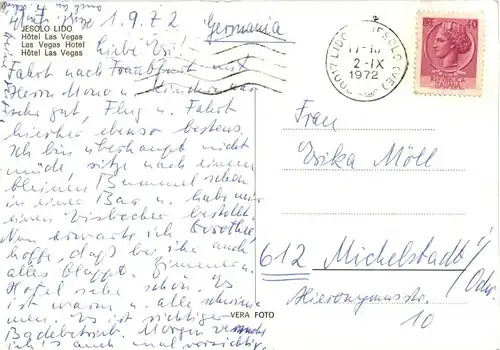 1.9.72
Germania
JESOLO LIDO
Hôtel Las Vegas
Las Vegas Hotel
Hôtel Las Vegas
Liebe Uri!
Fahrt nach Frankfurt mit
Herrn
sehr gut, Flug u. Fahrt
hierher ebenso bestens.
Ich bin überhaupt nicht
müde, sitze nach einem
kleinen Bummel schon
in einer Bar u. habe mir
einen bestellt.
Nun erwarte ich Dorothee
hoffe, daß bei ihr auch
alles klappt. Zimmer u.
Hotel sehr schön. Es
ist warm u. alle
Es ist richtiger
Badebetrieb. Morgen
ich's auch mal vorsichtig
LIDO JESOLO (VE)
2-IX
1972
40
Frau
Erika Möll
612 Michelstadt/
Odw.
Hieronymusstr.
10
VERA FOTO